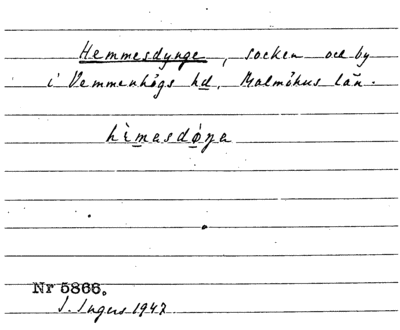 Hemmesdynge, socken och by
i Vemmenhögs hd, Malmöhus län.
hìmasdøŋa
Nr 5866.
I. Ingers 1947